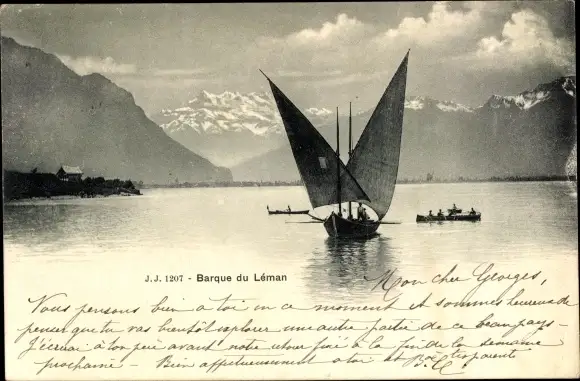 J.J. 1207 - Barque du Léman
Mon cher Georges,
Vous pensons bien à toi en ce moment et sommes heureux de
penser que tu vas bientôt explorer une autre partie de ce beau pays -
J'écrirai à ton père avant notre retour fixé à la fin de la semaine
prochaine - Bien affectueusement à toi et